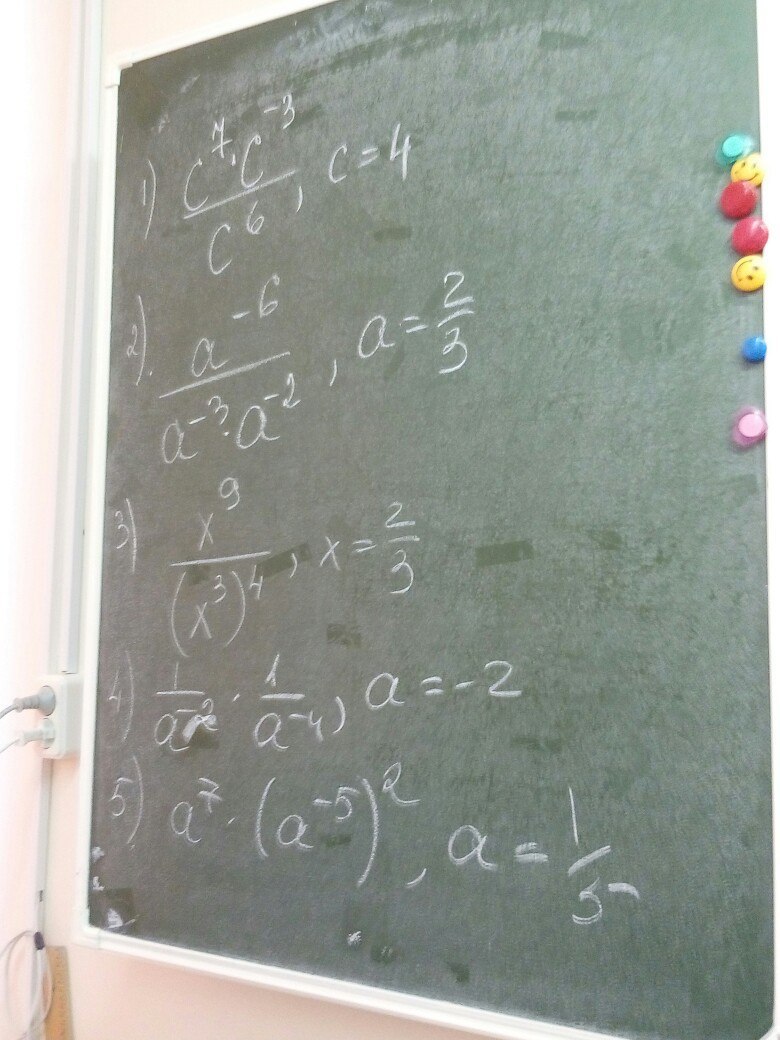 1) (c⁷·c⁻³)/c⁶, c=4
2) a⁻⁶/(a⁻³·a⁻²), a=2/3
3) x⁹/(x³)⁴, x=2/3
4) 1/a⁻² · 1/a⁻⁴, a=-2
5) a⁷·(a⁻⁵)², a=1/5